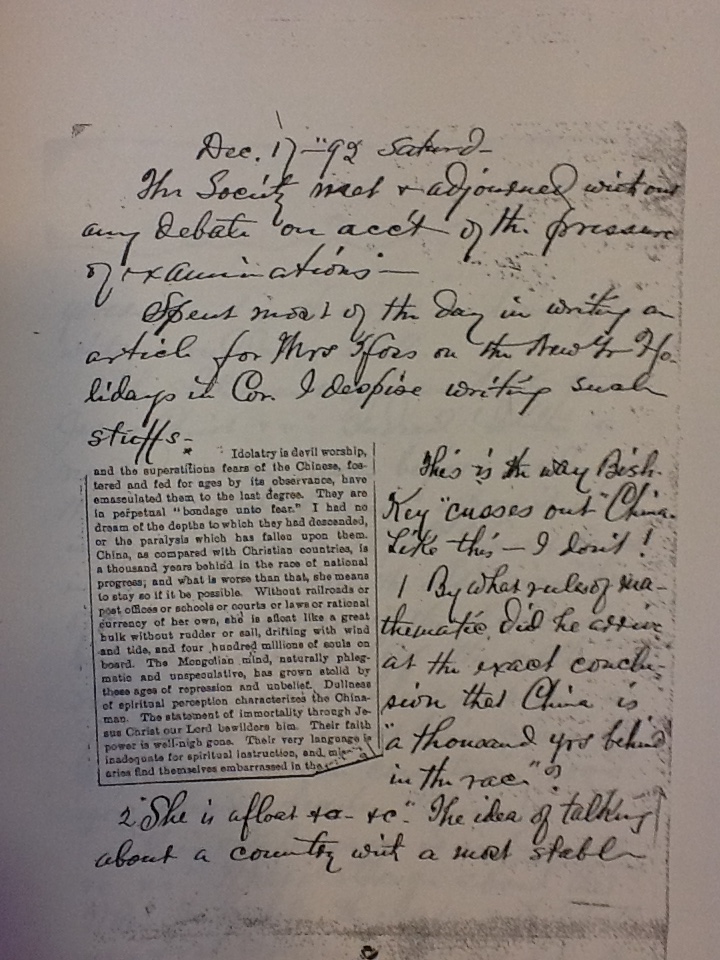 Dec. 17 - "92 Saturd-
The Society met & adjourned without
any debate on acc't of the pressure
of examinations -
Spent most of the day in writing an
article for Mrs on the New Yr Ho-
lidays in Cor. I despise writing such
stuffs -
Idolatry is devil worship,
and the superstitious fears of the Chinese, fos-
tered and fed for ages by its observance, have
emasculated them to the last degree. They are
in perpetual "bondage unto fear." I had no
dream of the depths to which they had descended,
or the paralysis which has fallen upon them.
China, as compared with Christian countries, is
a thousand years behind in the race of national
progress; and what is worse than that, she means
to stay so if it be possible. Without railroads or
post offices or schools or courts or laws or rational
currency of her own, she is afloat like a great
hulk without rudder or sail, drifting with wind
and tide, and four hundred millions of souls on
board. The Mongolian mind, naturally phleg-
matic and unspeculative, has grown stolid by
these ages of repression and unbelief. Dullness
of spiritual perception characterizes the China-
man. The statement of immortality through Je-
sus Christ our Lord bewilders him. Their faith
power is well-nigh gone. Their very language is
inadequate for spiritual instruction, and
aries find themselves embarrassed in the
This is the way Bish.
Key "cusses out" China.
Like this - I don't!
1 By what rules of ma-
thematic did he arrive
at the exact conclu-
sion that China is
"a thousand yrs behind
in the race"?
2 "She is afloat &c - &c". The idea of talking
about a country with a most stable